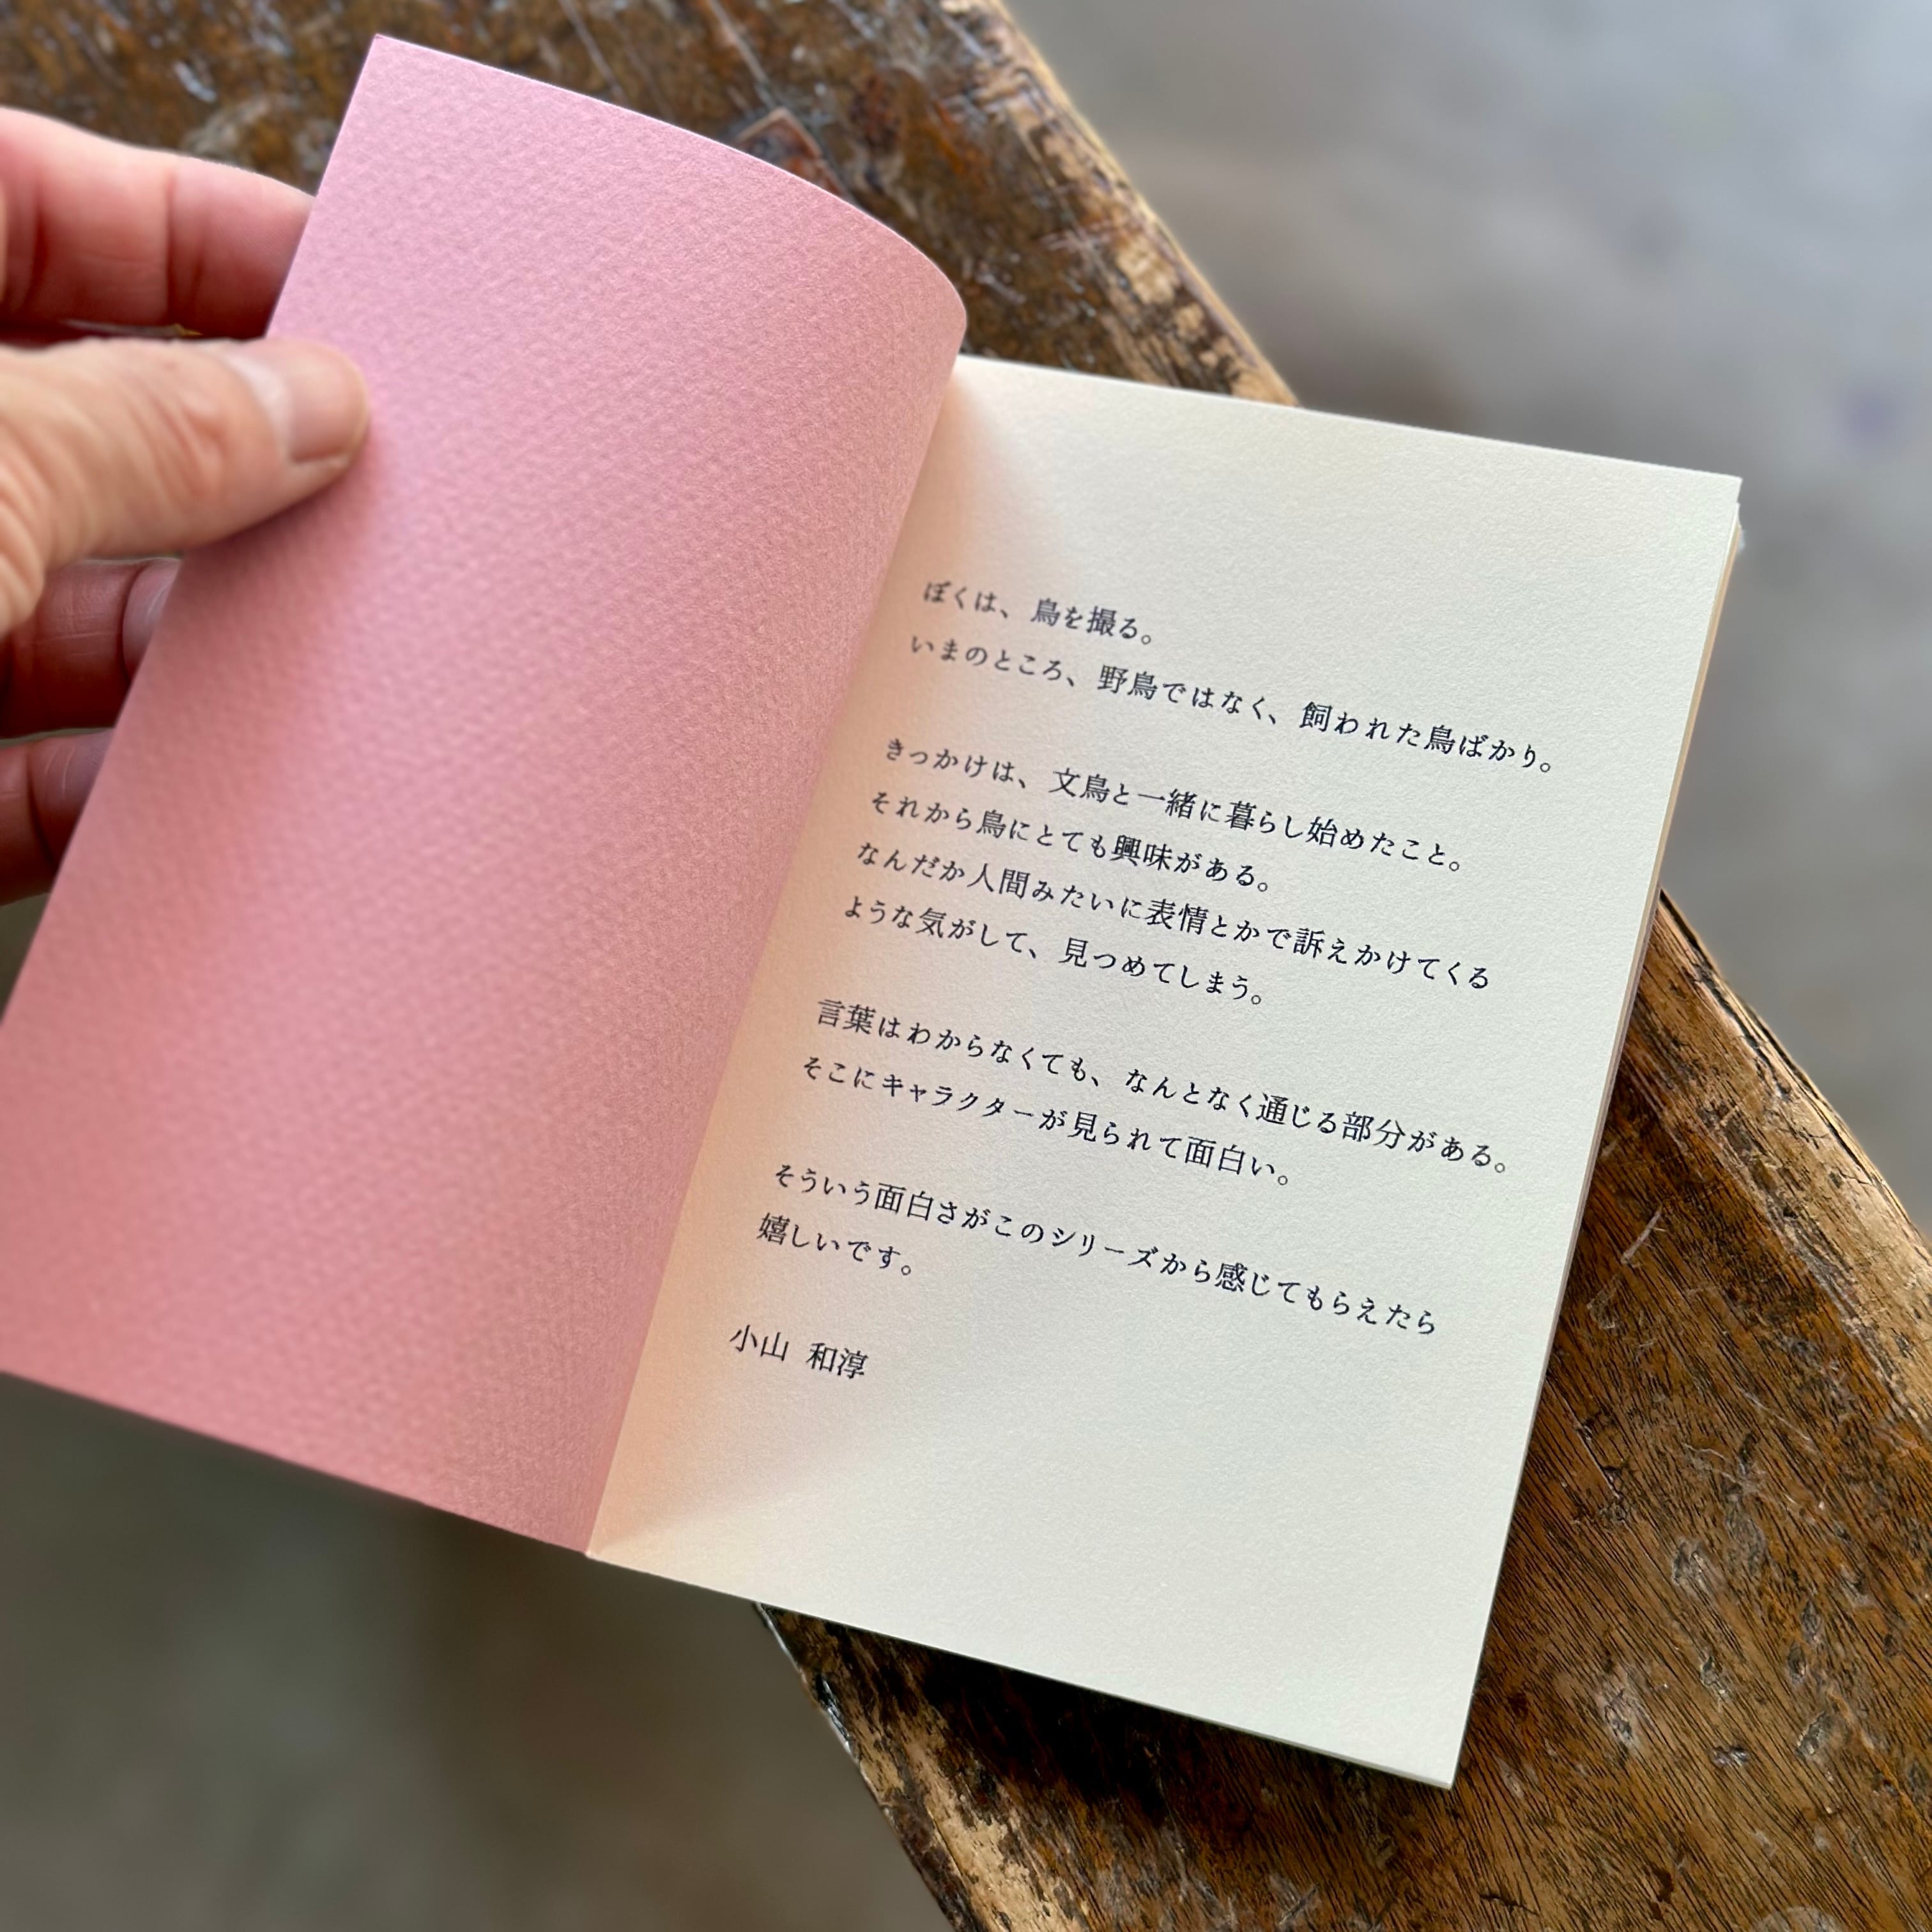 ぼくは、鳥を撮る。
いまのところ、野鳥ではなく、飼われた鳥ばかり。
きっかけは、文鳥と一緒に暮らし始めたこと。
それから鳥にとても興味がある。
なんだか人間みたいに表情とかで訴えかけてくる
ような気がして、見つめてしまう。
言葉はわからなくても、なんとなく通じる部分がある。
そこにキャラクターが見られて面白い。
そういう面白さがこのシリーズから感じてもらえたら
嬉しいです。
小山 和淳